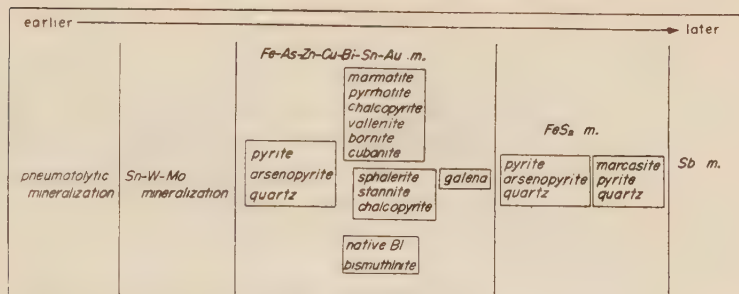 earlier
later
Fe-As-Zn-Cu-Bi-Sn-Au m.
pneumatolytic
mineralization
Sn-W-Mo
mineralization
pyrite
arsenopyrite
quartz
marmatite
pyrrhotite
chalcopyrite
vallenite
bornite
cubanite
sphalerite
stannite
chalcopyrite
native BI
bismuthinite
galena
FeS₂ m.
pyrite
arsenopyrite
quartz
marcasite
pyrite
quartz
Sb m.